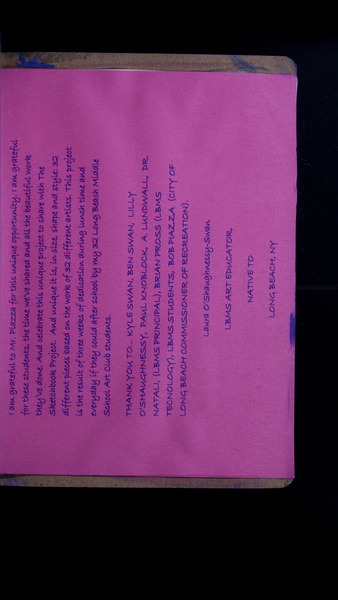 I am grateful to Mr. Piazza for this unique opportunity. I am grateful
for these students, the time we've shared and all the beautiful work
they've done. And celebrate this unique project to share with The
Sketchbook Project. And unique it is, in size, shape and style. 32
different pieces based on the work of 32 different artists. This project
is the result of three weeks of dedication during lunch time and
everyday if they could after school by my 32 Long Beach Middle
School Art Club students.
THANK YOU TO... KYLE SWAN, BEN SWAN, LILLY
O'SHAUGHNESSY, PAUL KNOBLOCK, A. LUNDWALL, DR.
NATALI, (LBMS PRINCIPAL), BRIAN PROSS (LBMS
TECNOLOGY), LBMS STUDENTS, BOB PIAZZA (CITY OF
LONG BEACH COMMISSIONER OF RECREATION).
Laura O'Shaughnessy-Swan
LBMS ART EDUCATOR,
NATIVE TO
LONG BEACH, NY